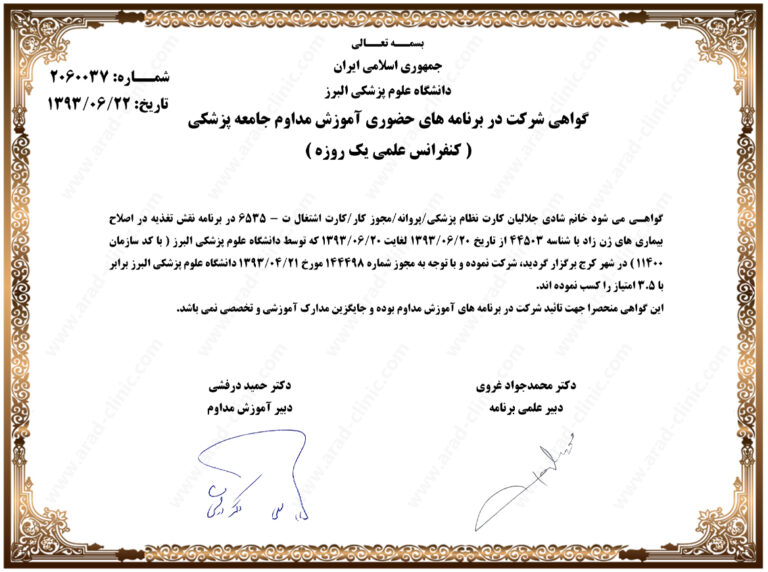 بسمه تعالی
جمهوری اسلامی ایران
دانشگاه علوم پزشکی البرز
شماره: ۲۰۶۰۰۳۷
تاریخ: ۱۳۹۳/۰۶/۲۲
گواهی شرکت در برنامه های حضوری آموزش مداوم جامعه پزشکی
( کنفرانس علمی یک روزه )
گواهی می شود خانم شادی جلالیان کارت نظام پزشکی/پروانه/مجوز کار/کارت اشتغال ت - ۶۵۳۵ در برنامه نقش تغذیه در اصلاح
بیماری های ژن زاد با شناسه ۴۴۵۰۳ از تاریخ ۱۳۹۳/۰۶/۲۰ لغایت ۱۳۹۳/۰۶/۲۰ که توسط دانشگاه علوم پزشکی البرز ( با کد سازمان
۱۱۴۰۰ ) در شهر کرج برگزار گردید، شرکت نموده و با توجه به مجوز شماره ۱۴۴۴۹۸ مورخ ۱۳۹۳/۰۴/۲۱ دانشگاه علوم پزشکی البرز برابر
با ۳.۵ امتیاز را کسب نموده اند.
این گواهی منحصرا جهت تائید شرکت در برنامه های آموزش مداوم بوده و جایگزین مدارک آموزشی و تخصصی نمی باشد.
دکتر محمدجواد غروی
دبیر علمی برنامه
دکتر حمید درفشی
دبیر آموزش مداوم
www.arad-clinic.com